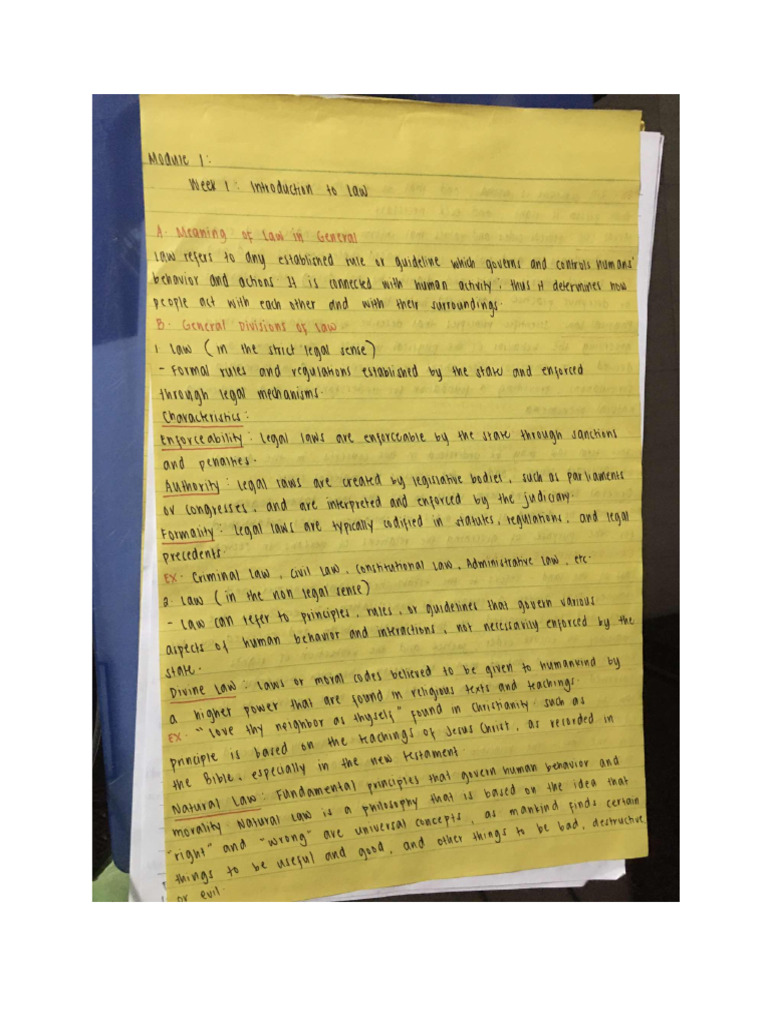 Module 1:
Week 1: Introduction to Law
A. Meaning of Law in General
Law refers to any established rule or guideline which governs and controls humans'
behavior and actions. It is connected with human activity; thus it determines how
people act with each other and with their surroundings.
B. General Divisions of Law
1. Law (in the strict legal sense)
- Formal rules and regulations established by the state and enforced
through legal mechanisms.
Characteristics:
Enforceability: Legal laws are enforceable by the state through sanctions
and penalties.
Authority: Legal laws are created by legislative bodies, such as parliaments
or congresses, and are interpreted and enforced by the judiciary.
Formality: Legal laws are typically codified in statutes, regulations, and legal
precedents.
EX. Criminal Law, Civil Law, Constitutional Law, Administrative Law, etc.
2. Law (in the non legal sense)
- Law can refer to principles, rules, or guidelines that govern various
aspects of human behavior and interactions, not necessarily enforced by the
state.
Divine Law: Laws or moral codes believed to be given to humankind by
a higher power that are found in religious texts and teachings.
EX. "Love thy neighbor as thyself" found in Christianity such as
principle is based on the teachings of Jesus Christ, as recorded in
the Bible, especially in the new testament.
Natural Law: Fundamental principles that govern human behavior and
morality. Natural law is a philosophy that is based on the idea that
"right" and "wrong" are universal concepts, as mankind finds certain
things to be useful and good, and other things to be bad, destructive,
or evil.